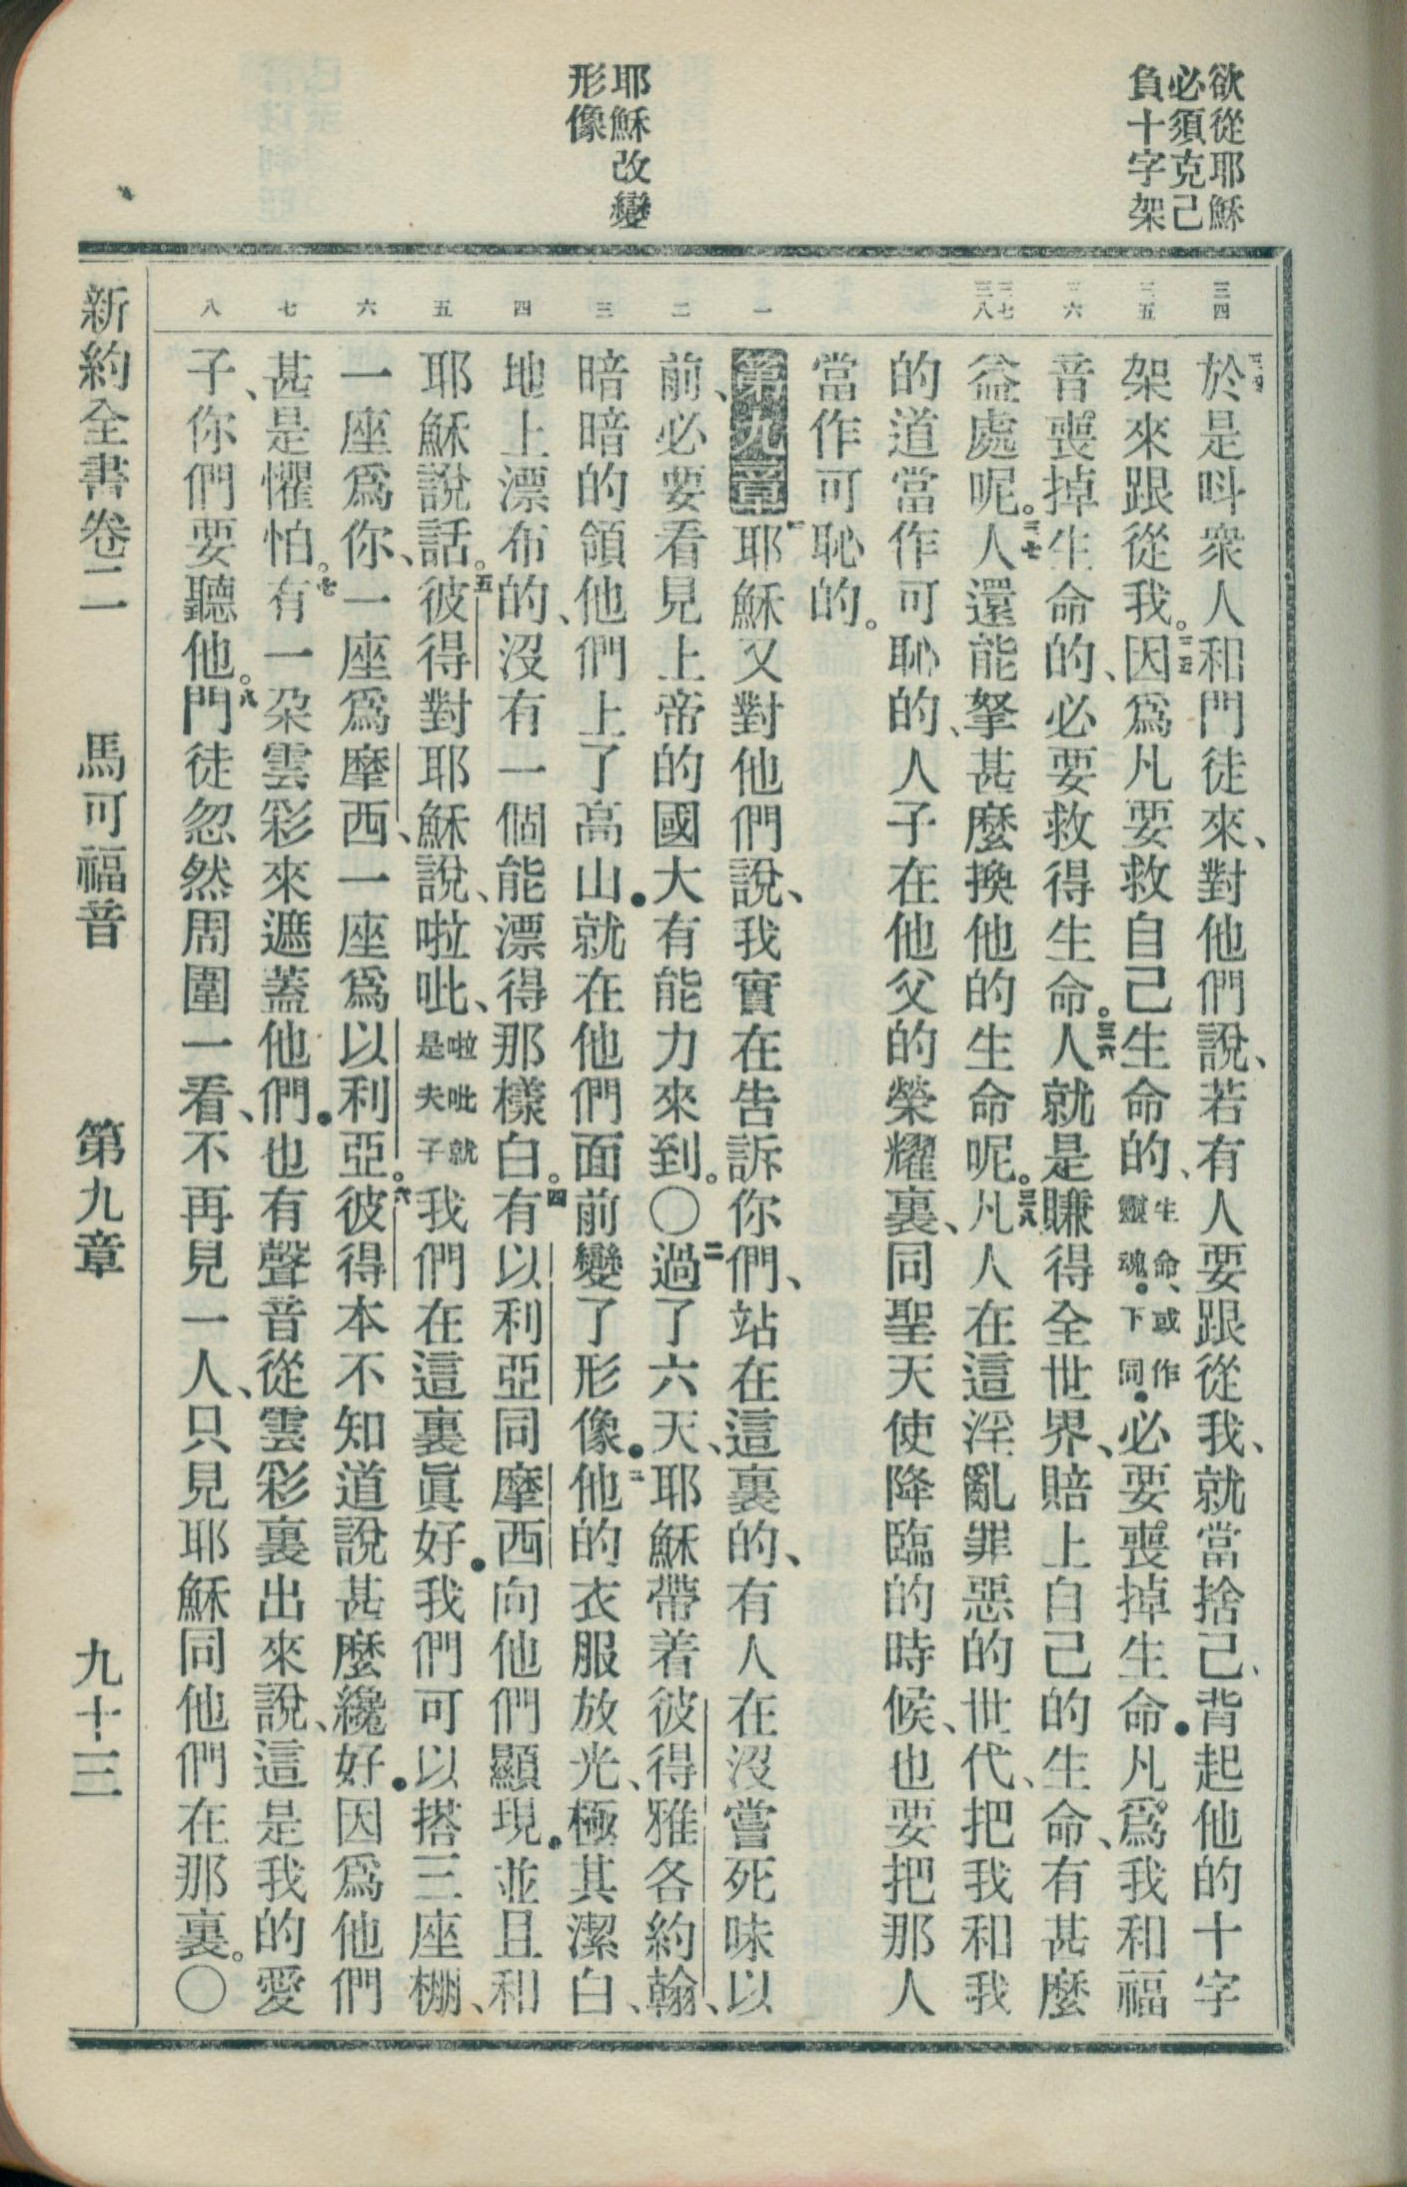 欲從耶穌
必須克己
負十字架
耶穌改變
形像
三四
三五
三六
三七
三八
一
二
三
四
五
六
七
八
三四於是呌衆人和門徒來、對他們說、若有人要跟從我、就當捨己、背起他的十字
架來跟從我。三五因爲凡要救自己生命的、生命、或作靈魂。下同。必要喪掉生命．凡爲我和福
音喪掉生命的、必要救得生命。三六人就是賺得全世界、賠上自己的生命、有甚麼
益處呢。三七人還能拏甚麼換他的生命呢。三八凡人在這淫亂罪惡的世代、把我和我
的道當作可恥的、人子在他父的榮耀裏、同聖天使降臨的時候、也要把那人
當作可恥的。
第九章 一耶穌又對他們說、我實在告訴你們、站在這裏的、有人在沒嘗死味以
前、必要看見上帝的國大有能力來到。〇二過了六天、耶穌帶着彼得雅各約翰、
暗暗的領他們上了高山．就在他們面前變了形像．三他的衣服放光、極其潔白、
地上漂布的、沒有一個能漂得那樣白。四有以利亞同摩西向他們顯現．並且和
耶穌說話。五彼得對耶穌說、啦吡、啦吡就是夫子我們在這裏眞好．我們可以搭三座棚、
一座爲你、一座爲摩西、一座爲以利亞。六彼得本不知道說甚麼纔好．因爲他們
甚是懼怕。七有一朶雲彩來遮蓋他們．也有聲音從雲彩裏出來說、這是我的愛
子、你們要聽他。八門徒忽然周圍一看、不再見一人、只見耶穌同他們在那裏。〇
新約全書卷二 馬可福音 第九章 九十三